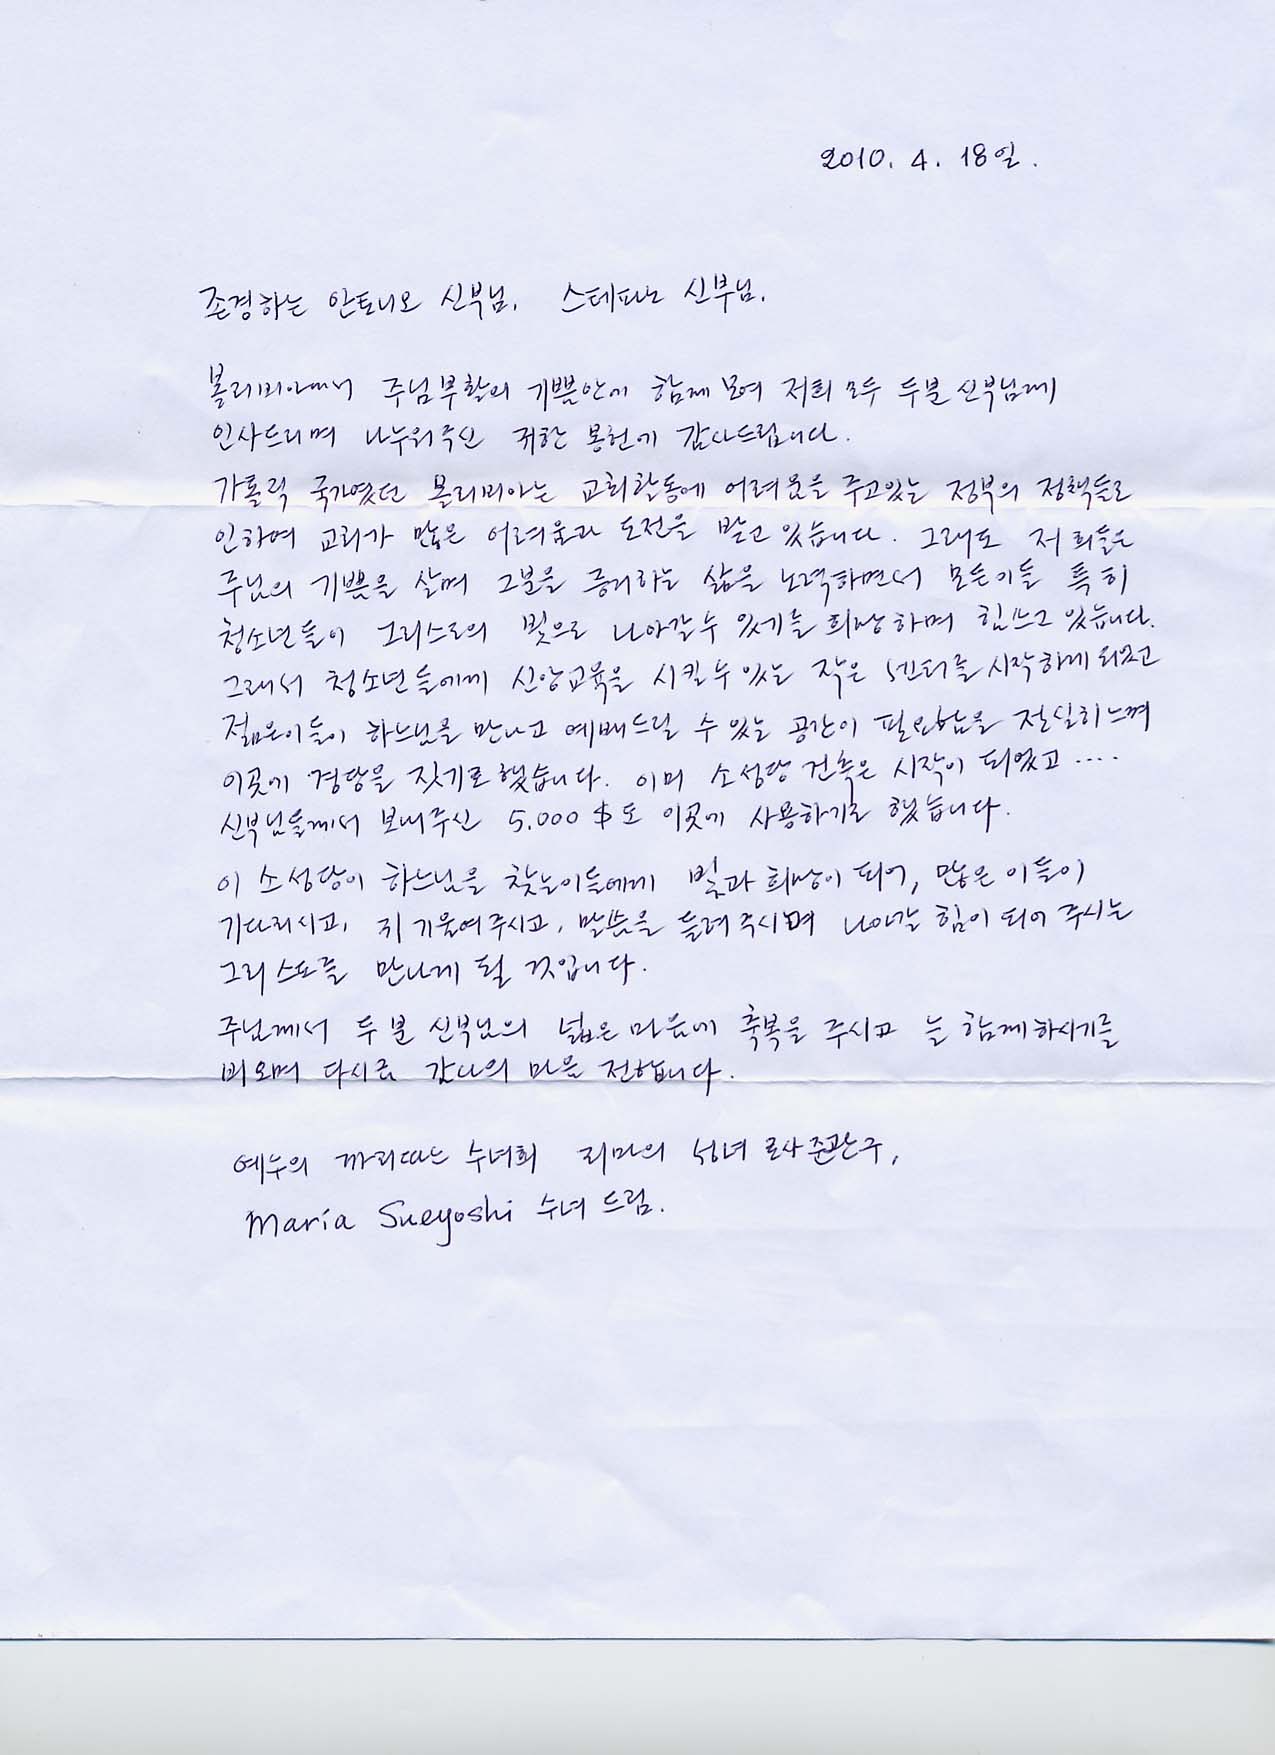 2010. 4. 18일.
존경하는 안토니오 신부님, 스테파노 신부님.
볼리비아에서 주님부활의 기쁨안에 함께 모여 저희 모두 두분 신부님께
인사드리며 나누어주신 귀한 봉헌에 감사드립니다.
가톨릭 국가였던 볼리비아는 교회활동에 어려움을 주고있는 정부의 정책들로
인하여 교회가 많은 어려움과 도전을 받고 있습니다. 그래도 저희들은
주님의 기쁨을 살며 그분을 증거하는 삶을 노력하면서 모든이들 특히
청소년들이 그리스도의 빛으로 나아갈수 있게를 희망하며 힘쓰고 있습니다.
그래서 청소년들에게 신앙교육을 시킬수있는 작은 센터를 시작하게 되었고
젊은이들이 하느님을 만나고 예배드릴 수 있는 공간이 필요함을 절실히느껴
이곳에 경당을 짓기로 했습니다. 이미 소성당 건축은 시작이 되었고 ....
신부님들께서 보내주신 5.000 $도 이곳에 사용하기로 했습니다.
이 소성당이 하느님을 찾는이들에게 빛과 희망이 되어, 많은 이들이
기다리시고, 귀 기울여주시고, 말씀을 들려주시며 나아갈 힘이 되어 주시는
그리스도를 만나게 될 것입니다.
주님께서 두 분 신부님의 넓은 마음에 축복을 주시고 늘 함께하시기를
비오며 다시금 감사의 마음 전합니다.
예수의 까리따스 수녀회 리마의 성녀 로사 준관구,
Maria Sueyoshi 수녀 드림.